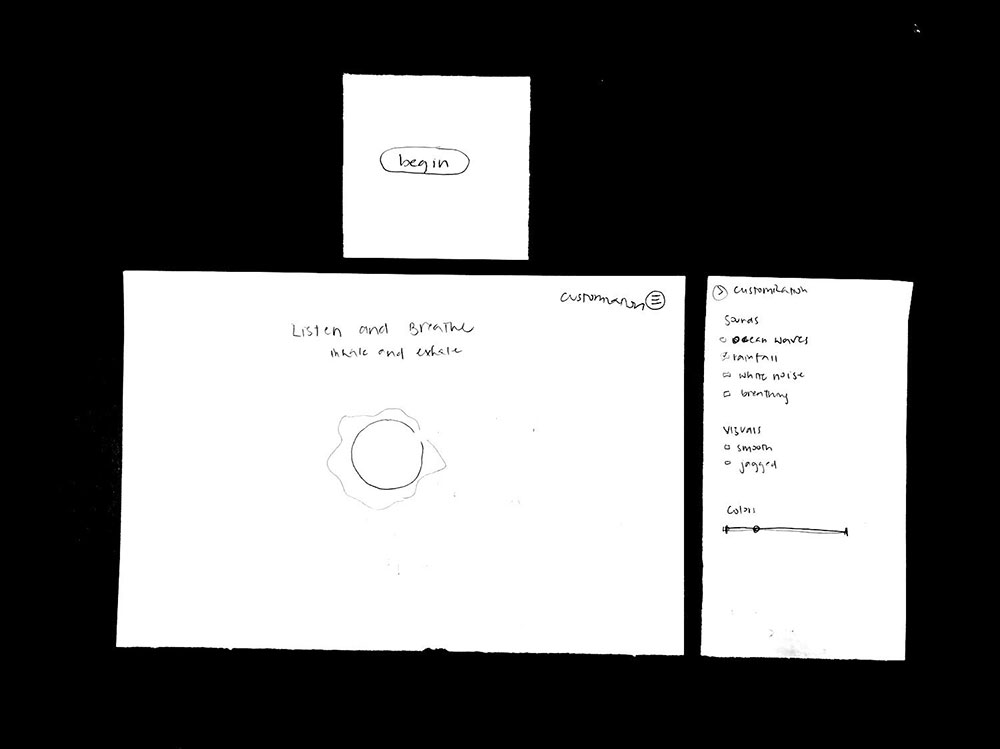 begin
customization
Listen and Breathe
inhale and exhale
customization
Sounds
ocean waves
rainfall
white noise
breathing
Visuals
smooth
jagged
Colors